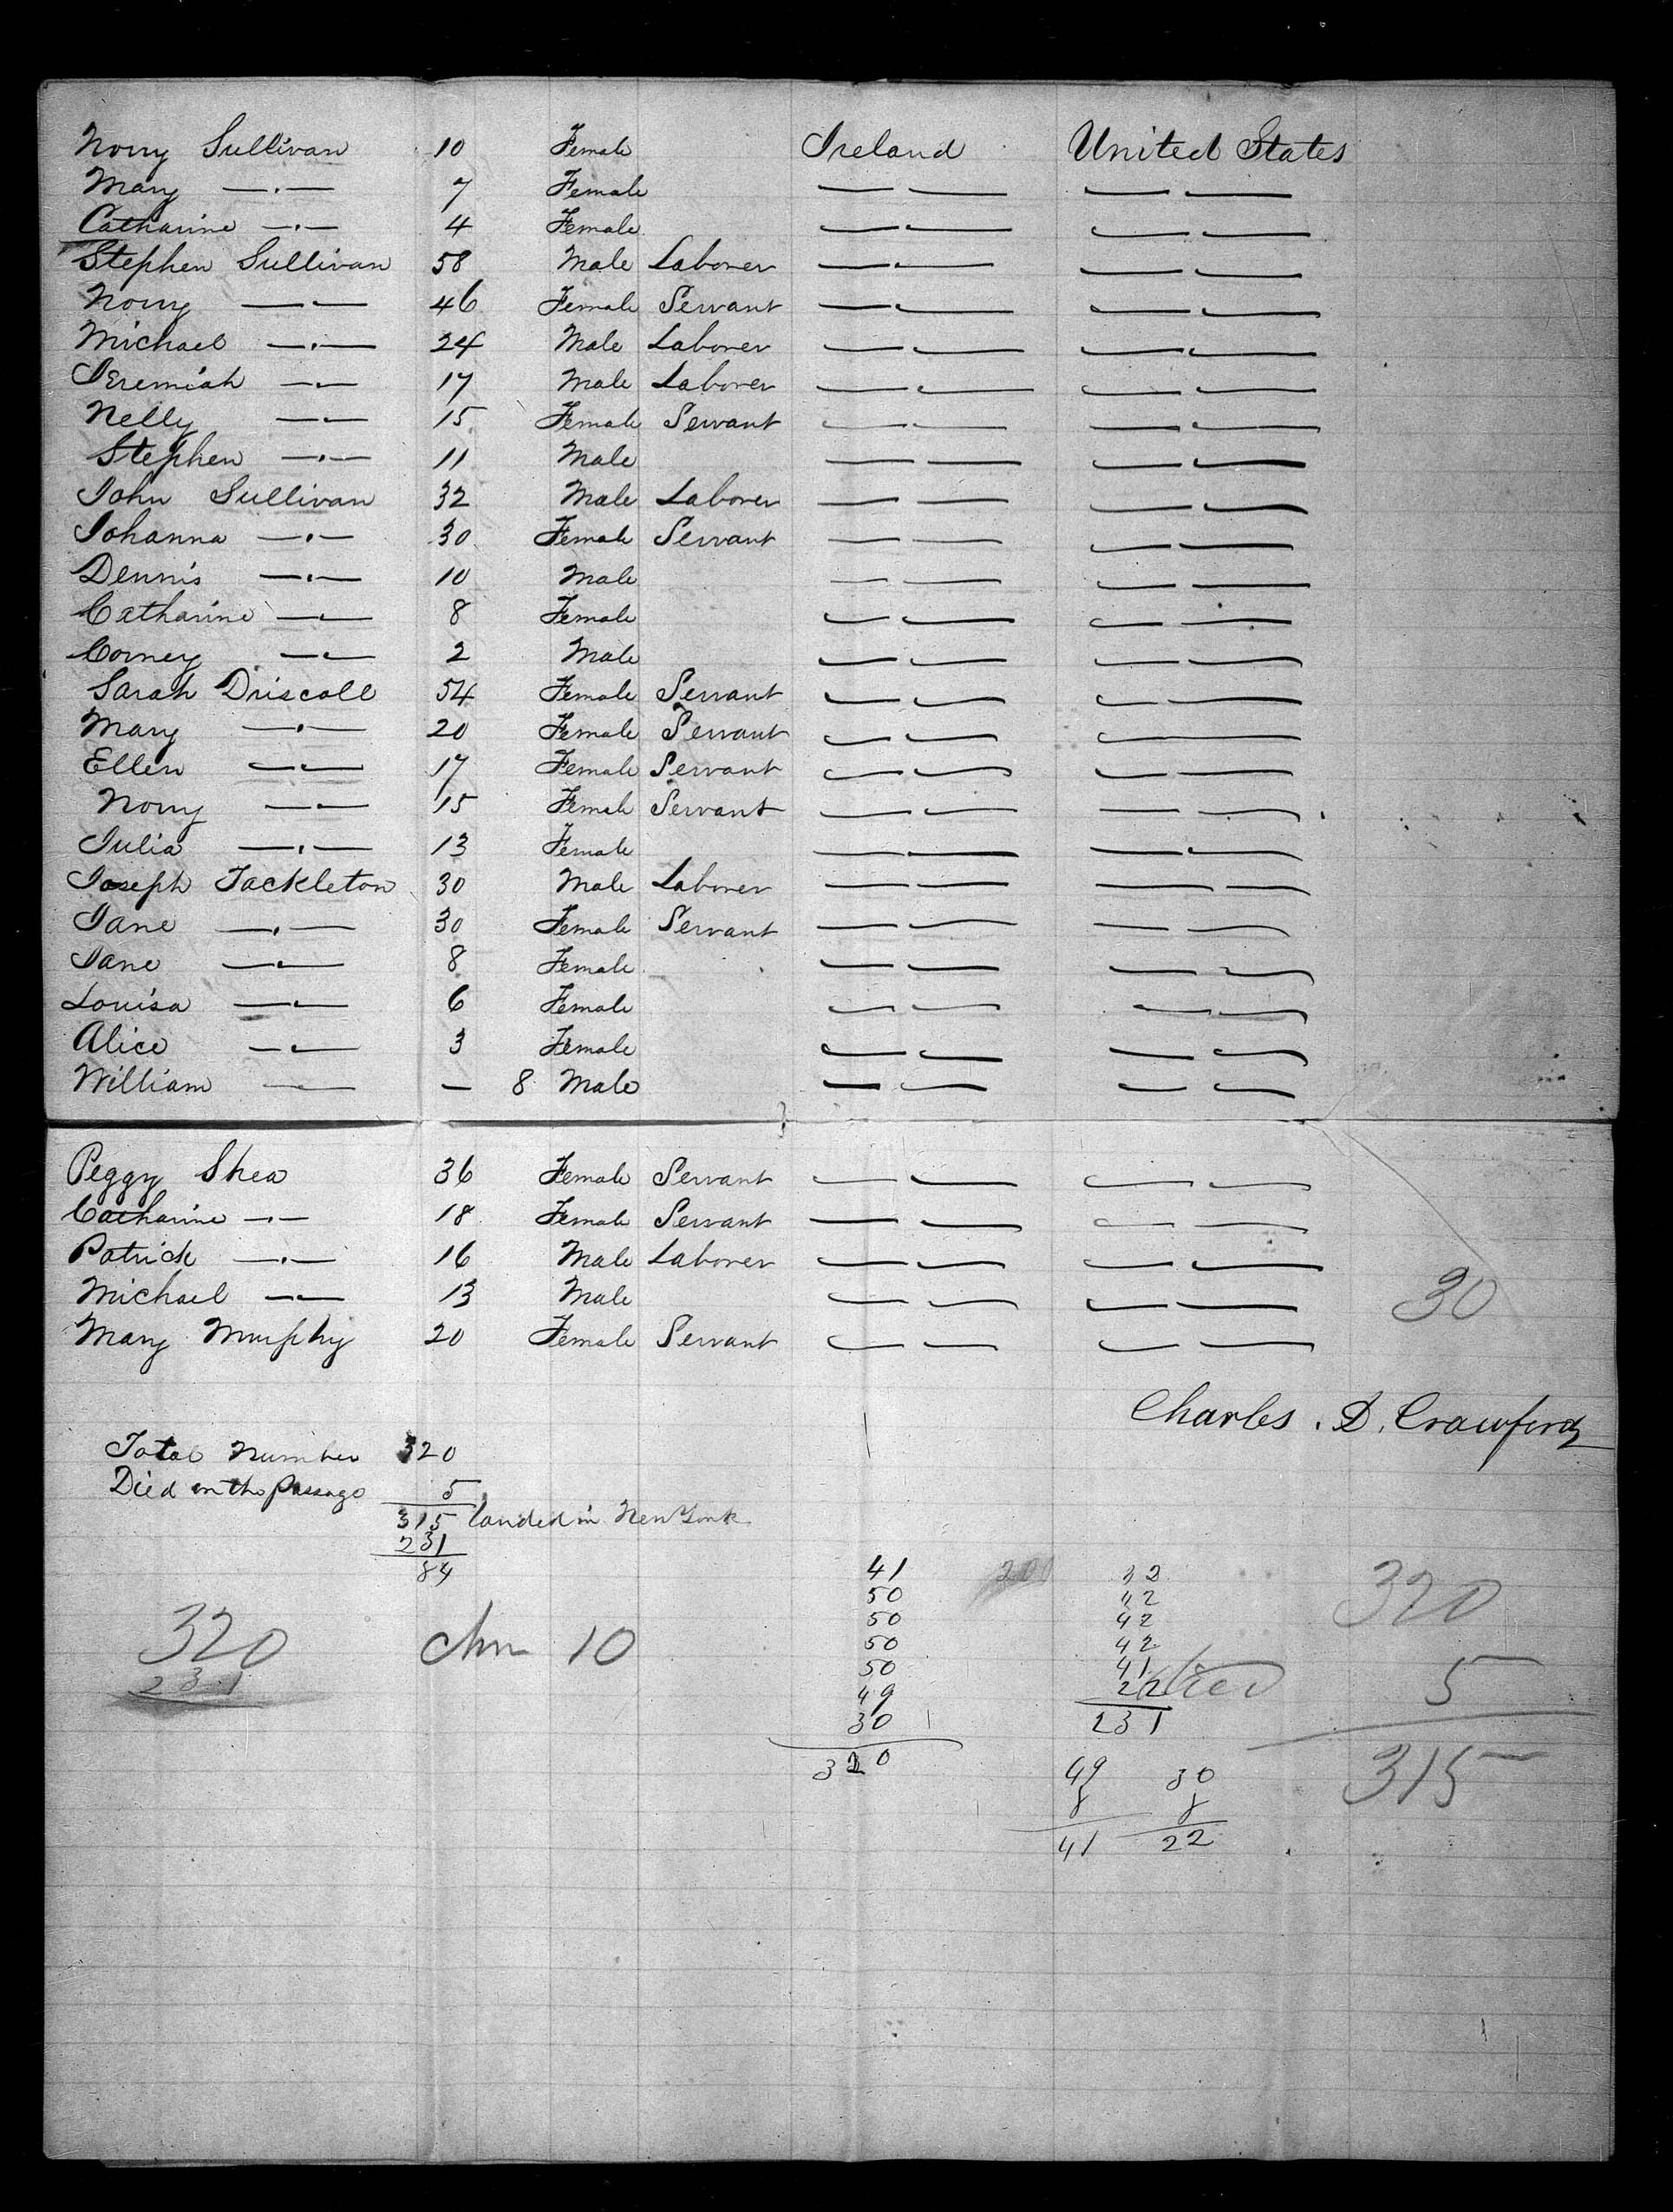 Nory Sullivan 10 Female Ireland United States
Mary —.— 7 Female — — — —
Catharine —.— 4 Female — — — —
Stephen Sullivan 58 Male Laborer — — — —
Nory — — 46 Female Servant — — — —
Michael —.— 24 Male Laborer — — — —
Jeremiah — — 17 Male Laborer — — — —
Nelly — — 15 Female Servant — — — —
Stephen —.— 11 Male — — — —
John Sullivan 32 Male Laborer — — — —
Johanna —.— 30 Female Servant — — — —
Dennis —.— 10 Male — — — —
Catharine — — 8 Female — — — —
Corney — — 2 Male — — — —
Sarah Driscoll 54 Female Servant — — — —
Mary —.— 20 Female Servant — — — —
Ellen — — 17 Female Servant — — — —
Nory — — 15 Female Servant — — — —
Julia —.— 13 Female — — — —
Joseph Tackleton 30 Male Laborer — — — —
Jane —.— 30 Female Servant — — — —
Jane — — 8 Female — — — —
Louisa — — 6 Female — — — —
Alice — — 3 Female — — — —
William — — — 8 Male — — — —
Peggy Shea 36 Female Servant — — — —
Catharine —.— 18 Female Servant — — — —
Patrick —.— 16 Male Laborer — — — —
Michael — — 13 Male — — — — 30
Mary Murphy 20 Female Servant — — — —
Charles . D. Crawford
Total Number 320
Died on the passage 5
315 landed in New York
231
84
320
231
10
41
50
50
50
50
49
30
320
200
42
42
42
41
22
231
49 30
8 8
41 22
320
died 5
315